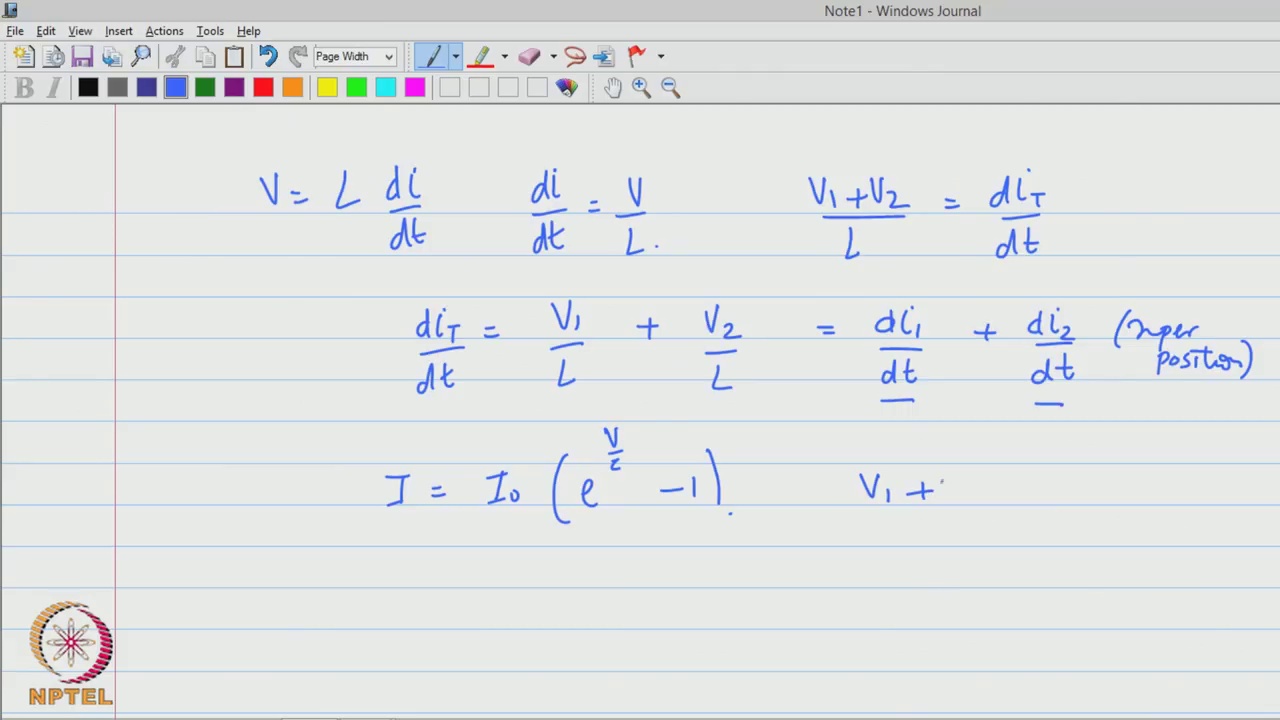 Note1 - Windows Journal
File Edit View Insert Actions Tools Help
Page Width
B I
V = L di/dt di/dt = V/L. V1 + V2/L = diT/dt
diT/dt = V1/L + V2/L = di1/dt + di2/dt (super
position)
I = I0 (e^V/c - 1). V1 +
NPTEL